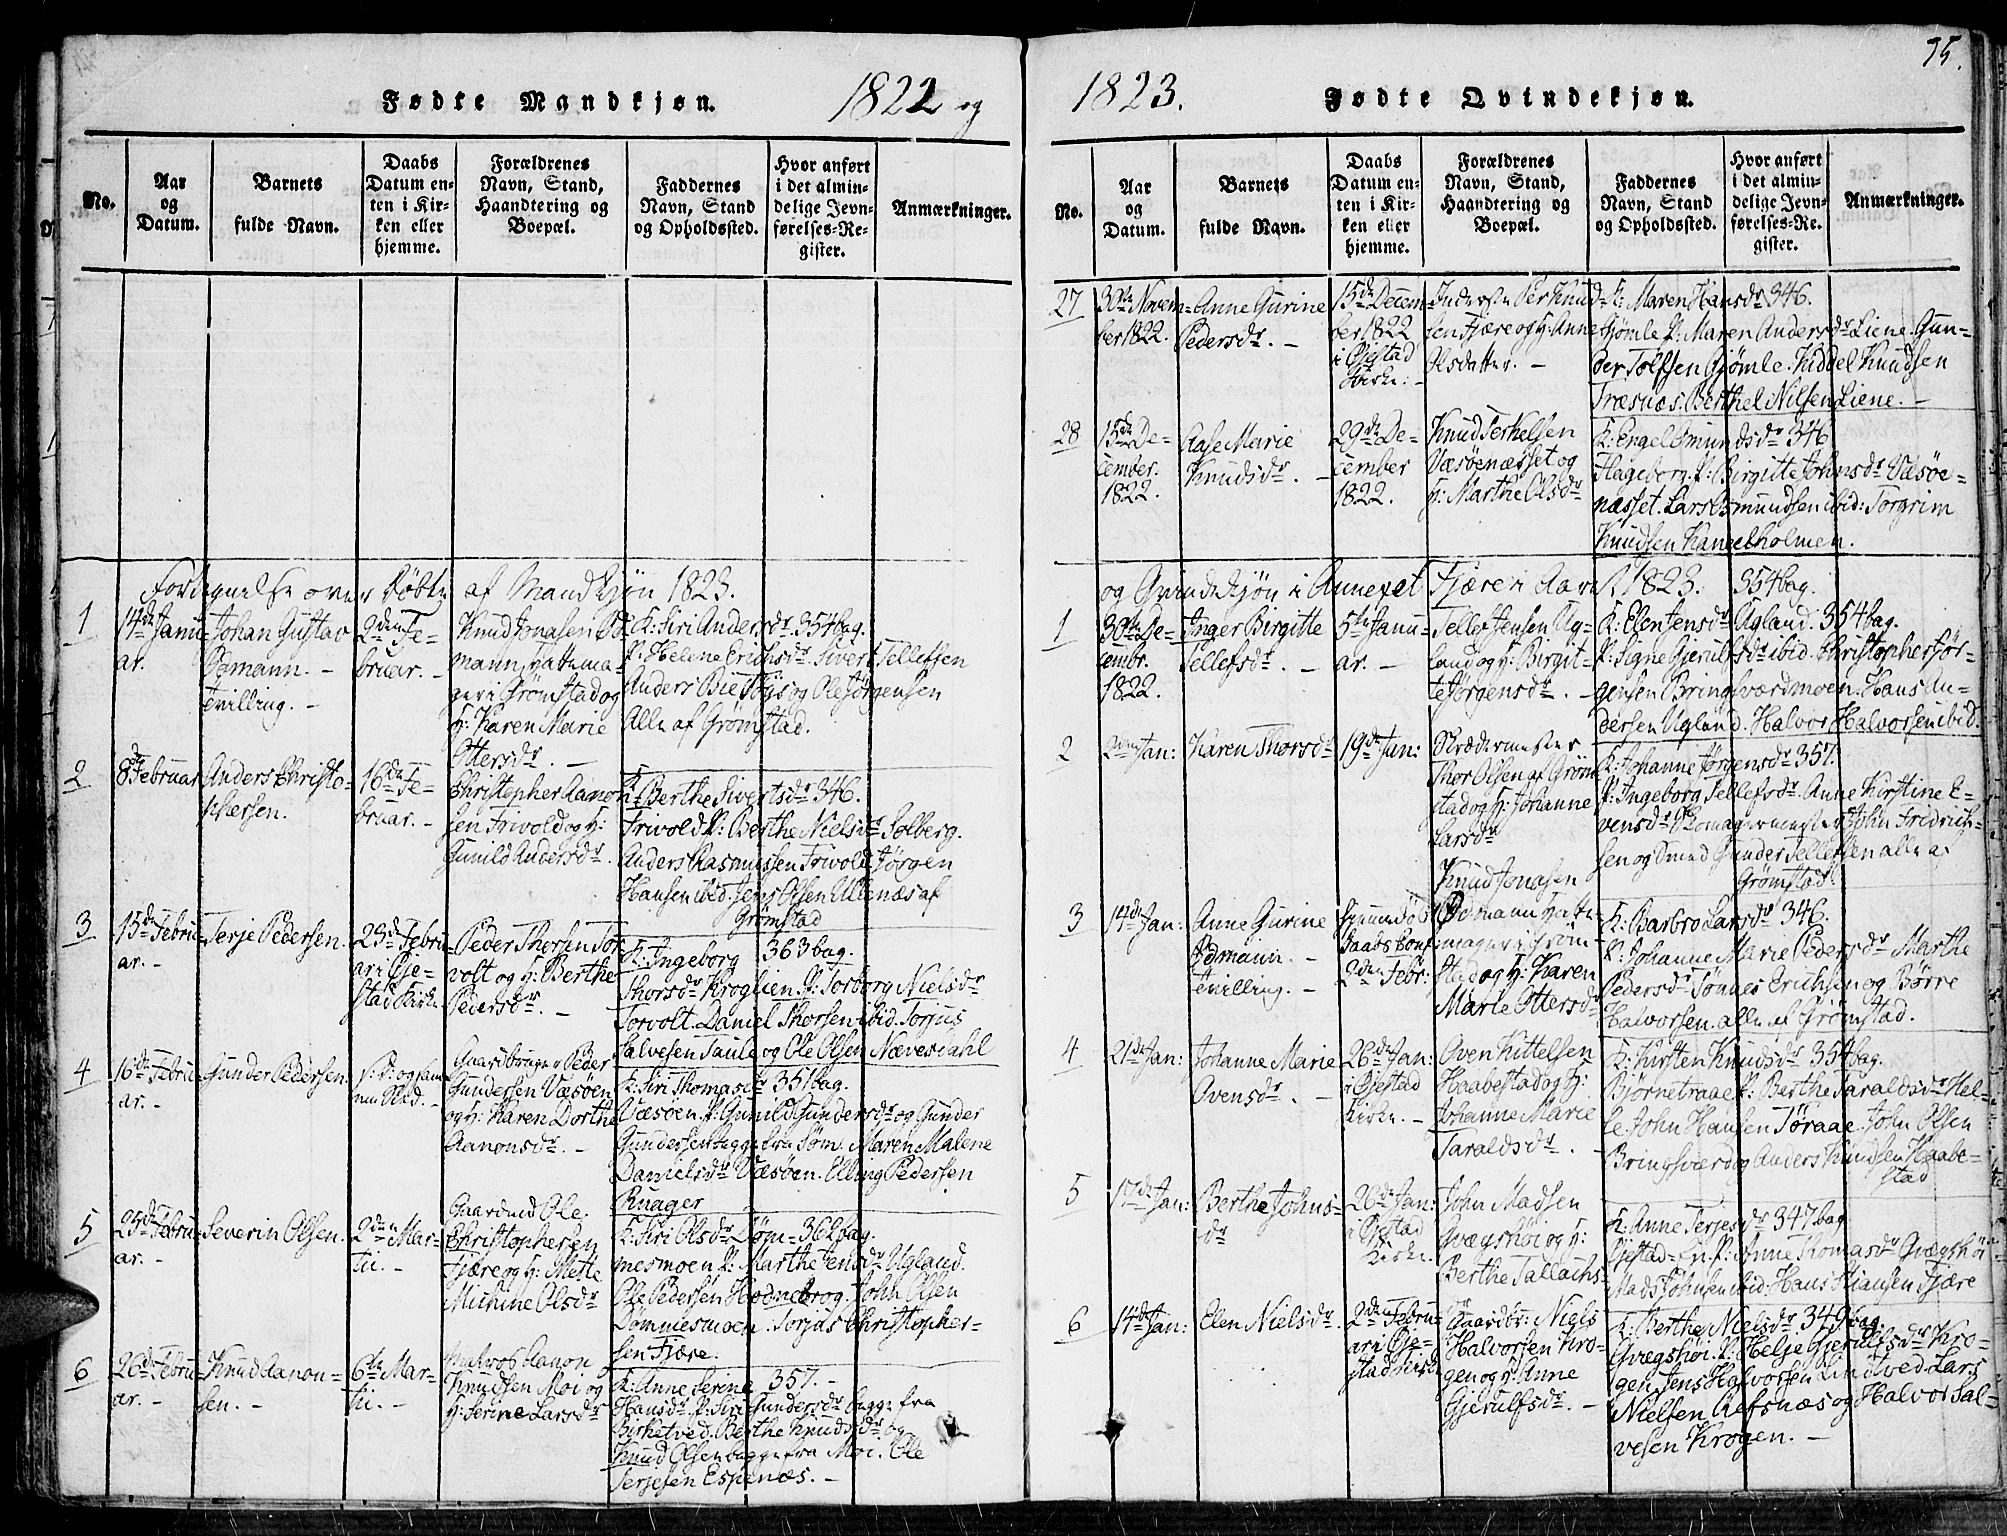 75.
Fødte Mandkjøn.
1822 og
No.
Aar
og
Datum.
Barnets
fulde Navn.
Daabs
Datum en-
ten i Kir-
ken eller
hjemme.
Forældrenes
Navn, Stand,
Haandtering og
Boepæl.
Faddernes
Navn, Stand
og Opholdssted.
Hvor anført
i det almin-
delige Jevn-
førelses-Re-
gister.
Anmærkninger.
Fortegnelse over Døbte af Mandkjøn 1823.
1
14de Janu-
ar.
Johan Gustav
Ødmann. -
Tvilling. -
2den Fe-
bruar. -
Knud Jonasen Ød-
mann, Hattema-
ger i Grømstad og
H: Karen Marie
Ottersdr. -
K: Siri Andersdr. 354 bag.
P: Helene Erichsdr. Sivert Tellefsen
Anders og Ole Jørgensen
Alle af Grømstad.
2
8de Februar
Anders Christo-
phersen.
16de Fe-
bruar. -
Christopher Aanon-
sen Frivold og H:
Gunild Andersdr.
K: Berthe Sivertsdr. 346.
Frivold P: Berthe Nielsdr Solberg.
Anders Rasmussen Frivold Jørgen
Hansen ibid. Jens Olsen Ullenæs af
Grømstad
3
15de Febru-
ar. -
Terje Pedersen.
23de Febru-
ar i Øje-
stad Kirke
Peder Thorsen Tor-
volt og H: Berthe
Pedersdr. -
K: Ingeborg 363 bag.
Thorsdr Kroglien P: Torborg Nielsdr
Torvolt. Daniel Thorsen ibid. Torjus
Salvesen Taule og Ole Olsen Nævesdahl
4
16de Febru-
ar. -
Gunder Pedersen.
Gaardbruger Peder
Gundersen Væsøen
og H: Karen Dorthe
Aanonsdr. -
K: Siri Thomasdr 351 bag.
Væsøen P: Gunild Gundersdr og Gunder
Gundersen begge fra Søm. Maren Malene
Danielsdr Væsøen. Elling Pedersen
Ruager
5
25de Febru-
ar. -
Severin Olsen.
2den Mar-
tii. -
Gaardmd Ole
Christophersen
Fjære og H: Mette
Michine Olsdr
K: Siri Olsdr Døm- 362 bag.
mesmoen P: Marthe Jensdr Ugland.
Ole Pedersen Hodnebrog. John Olsen
Dømmesmoen. Torjus Christopher-
sen Fjære.
6
26de Febru-
ar. -
Knud Aanon-
sen. -
6te Mar-
tii. -
Aanon
Knudsen Moi og
H: Serine Larsdr
K: Anne Serine 357. -
Hansdr. P: Siri Gundersdr begge fra
Birketved. Berthe Knudsdr og
Knud Olsen begge fra Moi. Ole
Terjesen Espenæs. -
1823.
Fødte Qvindekjøn.
No.
Aar
og
Datum.
Barnets
fulde Navn.
Daabs
Datum en-
ten i Kir-
ken eller
hjemme.
Forældrenes
Navn, Stand,
Haandtering og
Boepæl.
Faddernes
Navn, Stand
og Opholdssted.
Hvor anført
i det almin-
delige Jevn-
førelses-Re-
gister.
Anmærkninger.
27
30te Novem-
ber 1822.
Anne Gurine
Pedersdr. -
15de Decem-
ber 1822
i Øjestad
Kirke: -
Inderste Per Knud-
sen Fjære og H: Anne
Olsdatter. -
K: Maren Hansdr 346.
Gjømle P: Maren Andersdr Liene. Gun-
der Tolfsen Gjømle. Kiddel Knudsen
Træsnæs. Berthel Nilsen Liene. -
28
15de De-
cember.
1822.
Aase Marie
Knudsdr. -
29de De-
cember
1822.
Knud Terkelsen
Væsøenæsset og
H: Marthe Olsdr
K: Engel Omundsdr 346
Hageberg. P: Birgitte Johnsdr Væsøe-
næsset. Lars Osmundsen ibid: Torgrim
Knudsen Kaneelholmen.
og Qvindekjøn i Annexet Fjære i Aaret 1823. 354 bag.
1
30te De-
cembr.
1822.
Inger Birgitte
Tellefsdr. -
5te Janu-
ar. -
Tellef Jensen Ug-
land og H: Birgit-
te Jørgensdr. -
K: Elen Jensdr Ugland. 354 bag.
P: Signe Gjerulfsdr ibid. Christopher Jør-
gensen Bringsværdmoen. Hans An-
dersen Ugland. Halvor Halvorsen ibid.
2
2den Jan:
Karen Thorsdr
19de Jan:
Skrædermester
Thor Olsen af Grøm-
stad og H: Johanne
Larsdr
K: Johanne Jørgensdr 357.
P: Ingeborg Tellefsdr. Anne Kirstine E-
vensdr Skomagermester John Fredrich-
sen og Smed Gunder Tellefsen alle af
Grømstad.
3
14de Jan:
Anne Gurine
Ødmann. -
Tvilling. -
Hjemmedøbt
Daabs Conf.
2den Febr:
Knud Jonasen
Ødmann Hatte-
mager i Grøm-
stad og H: Karen
Marie Ottersdr
K: Barbro Larsdr 346.
P: Johanne Marie Pedersdr Marthe
Pedersdr Tønnes Erichsen og Børre
Halvorsen. alle af Grømstad.
4
21de Jan:
Johanne Marie
Ovensdr. -
26de Jan:
i Øjestad
Kirke. -
Oven Kittelsen
Haabestad og H:
Johanne Marie
Taraldsdr. -
K: Kirsten Knudsdr 354 bag.
Bjørnetraae P: Berthe Taraldsdr Hel-
le John Hansen Tøraae. John Olsen
Bringsværd og Anders Knudsen Haabe-
stad
5
17de Jan:
Berthe Johns-
dr
26de Jan:
i Øjestad
Kirke.
John Madsen
Qvægshøi og H:
Berthe Tallachs-
dr
K: Anne Terjesdr 347 bag
Øjestad P: Anne Thomasdr Qvægshøi
Mads Johnsen ibid. Hans Stiansen Fjære
6
14de Jan:
Elen Nielsdr.
2den Febru-
ar i Øje-
stad Kirke
Gaardbr: Niels
Halvorsen Kro-
gen og H: Anne
Gjerulfsdr. -
K: Berthe Nielsdr 349 bag.
Qvægshøi. P: Helje Gjerulfsdr Kro-
gen. Jens Halvorsen Lindtved Lars
Nielsen Refsnæs og Halvor Sal-
vesen Krogen. -